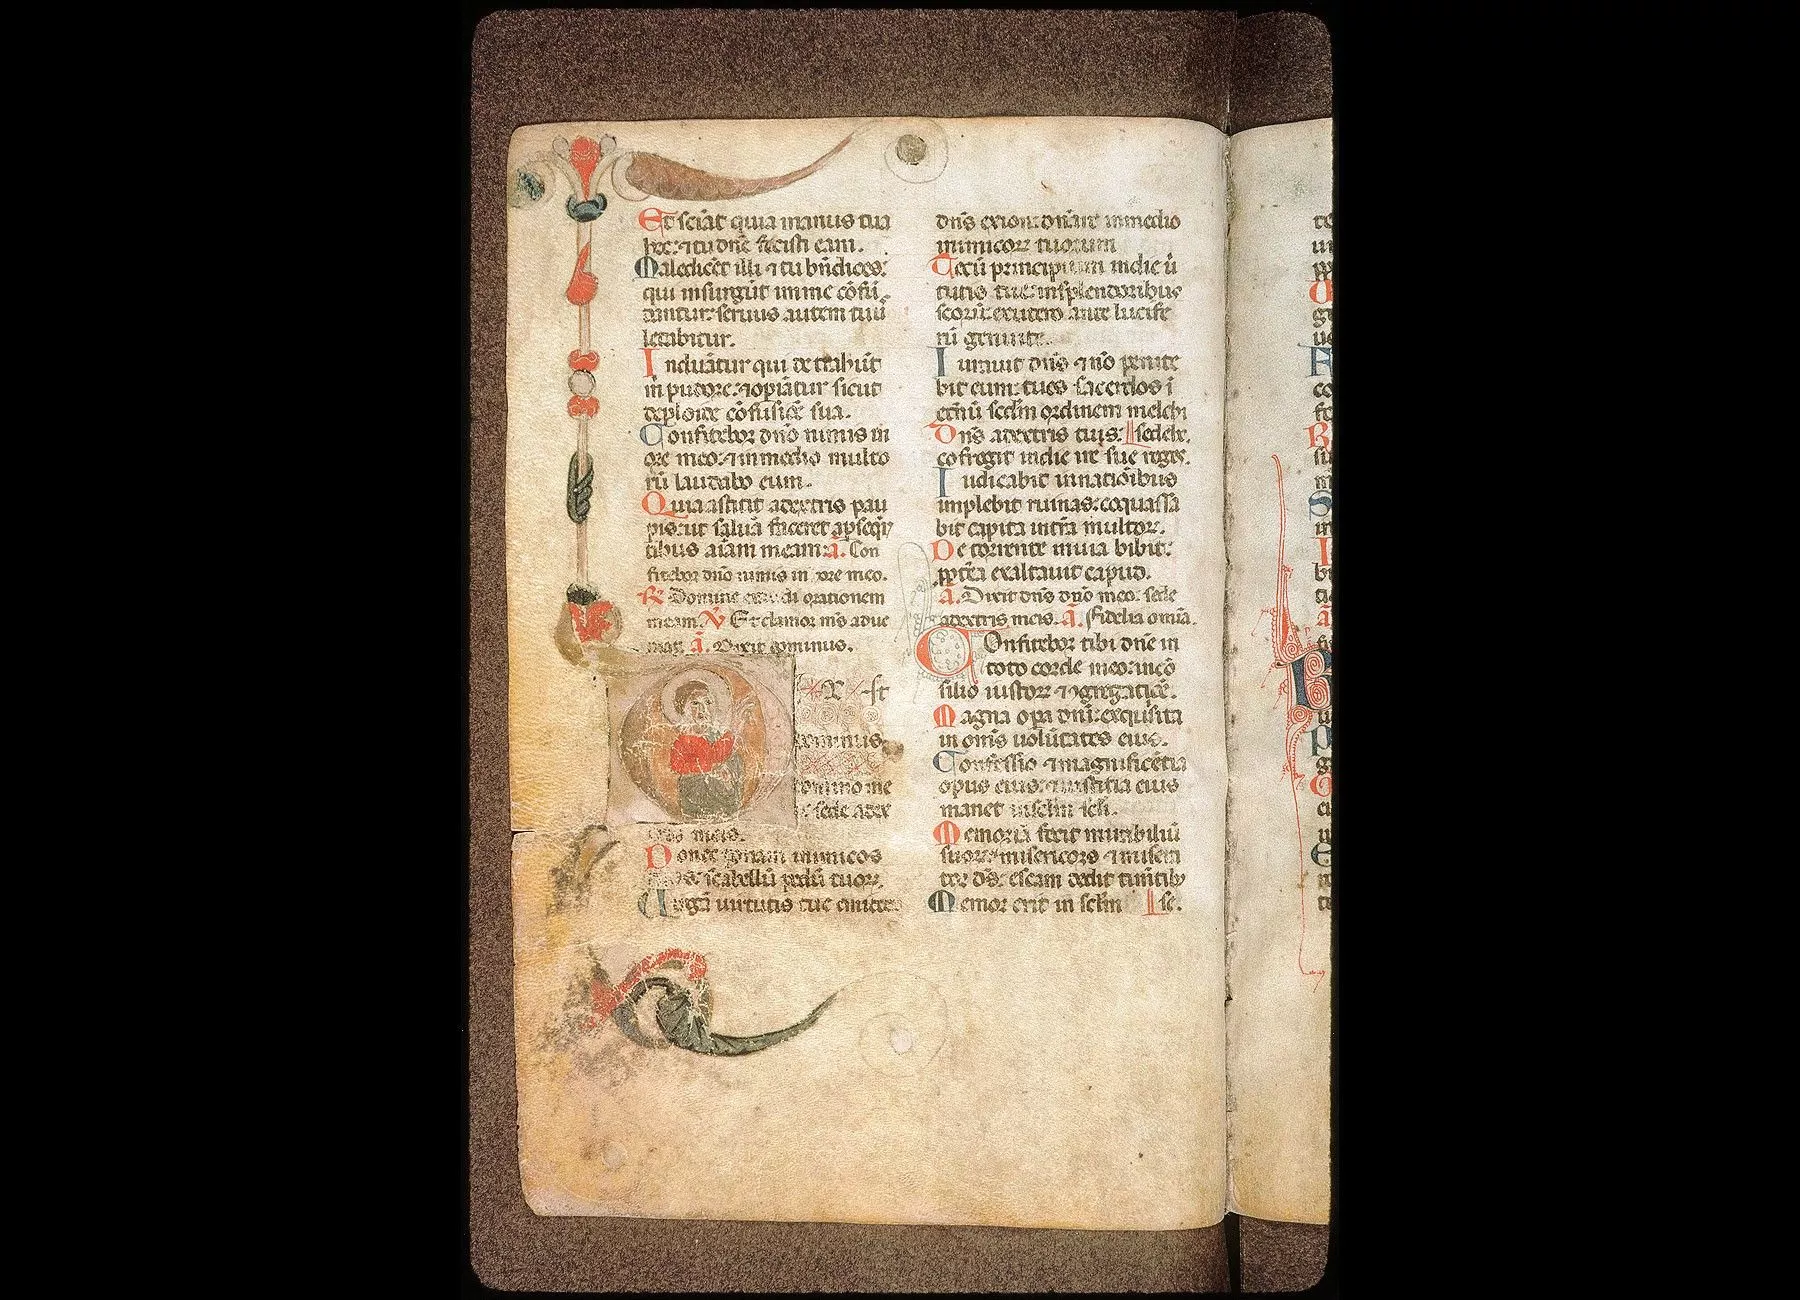 Et sciāt quia manus tua
hec: ⁊ tu dn̄e fecisti eam.
Maledicēt illi ⁊ tu bn̄dices:
qui insurgūt in me cōfū
dantur: seruus autem tuu᷒
letabitur.
Induātur qui detrahūt
m̄ pudore: ⁊ opiātur sicut
deploide cōfusiōe sua.
Confitebor dn̄o nimis in
ore meo: ⁊ in medio multo
rū laudabo eum.
Quia astitit adextris pau
pis: ut saluā faceret apseq̄n
tibus aīam meam: a͞. Con
fitebor dn̄o nimis in ore meo.
R̄ Domine exaudi orationem
meam. V̄ Et clamor m̄s adue
a͞. Dixit dominus.
Dixit
dominus
domino me
o: sede adex
tris meis.
Donec ponam inimicos
tuos: scabellū pedū tuoꝝ.
Uirgā uirtutis tue emittet
dn̄s exsion: dn̄are in medio
inimicoꝝ tuorum
Tecū principium in die ū
tutis tue: in splendoribus
sc̄oꝝ: ex utero ante lucife
rū genui te.
Iurauit dn̄s ⁊ nō penite
bit eum: tu es sacerdos ī
etn̄ū scd̄m ordinem melchi
Dn̄s adextris tuis: sedeh.
cōfregit in die ire sue reges.
Iudicabit in natiōibus
implebit ruinas: cōquassa
bit capita in tr̄a multoꝝ.
De torrente in uia bibit:
ꝓpt̄ea exaltauit capud.
a͞. Dixit dn̄s dn̄o meo: sede
adextris meis. a͞. Fidelia omīa.
Confitebor tibi dn̄e in
toto corde meo: in cō
silio iustoꝝ ⁊ ɔgregatiōe.
Magna op̄a dn̄i: exquisita
in om̄s uolūtates eius.
Confessio ⁊ magnificētia
opus eius: ⁊ iustitia eius
manet in sc̄lm sc̄li.
Memoriā fecit mirabiliū
suoꝝ: misericors ⁊ misera
tor dn̄s: escam dedit timētib᷒
Memor erit in sc̄lm se.